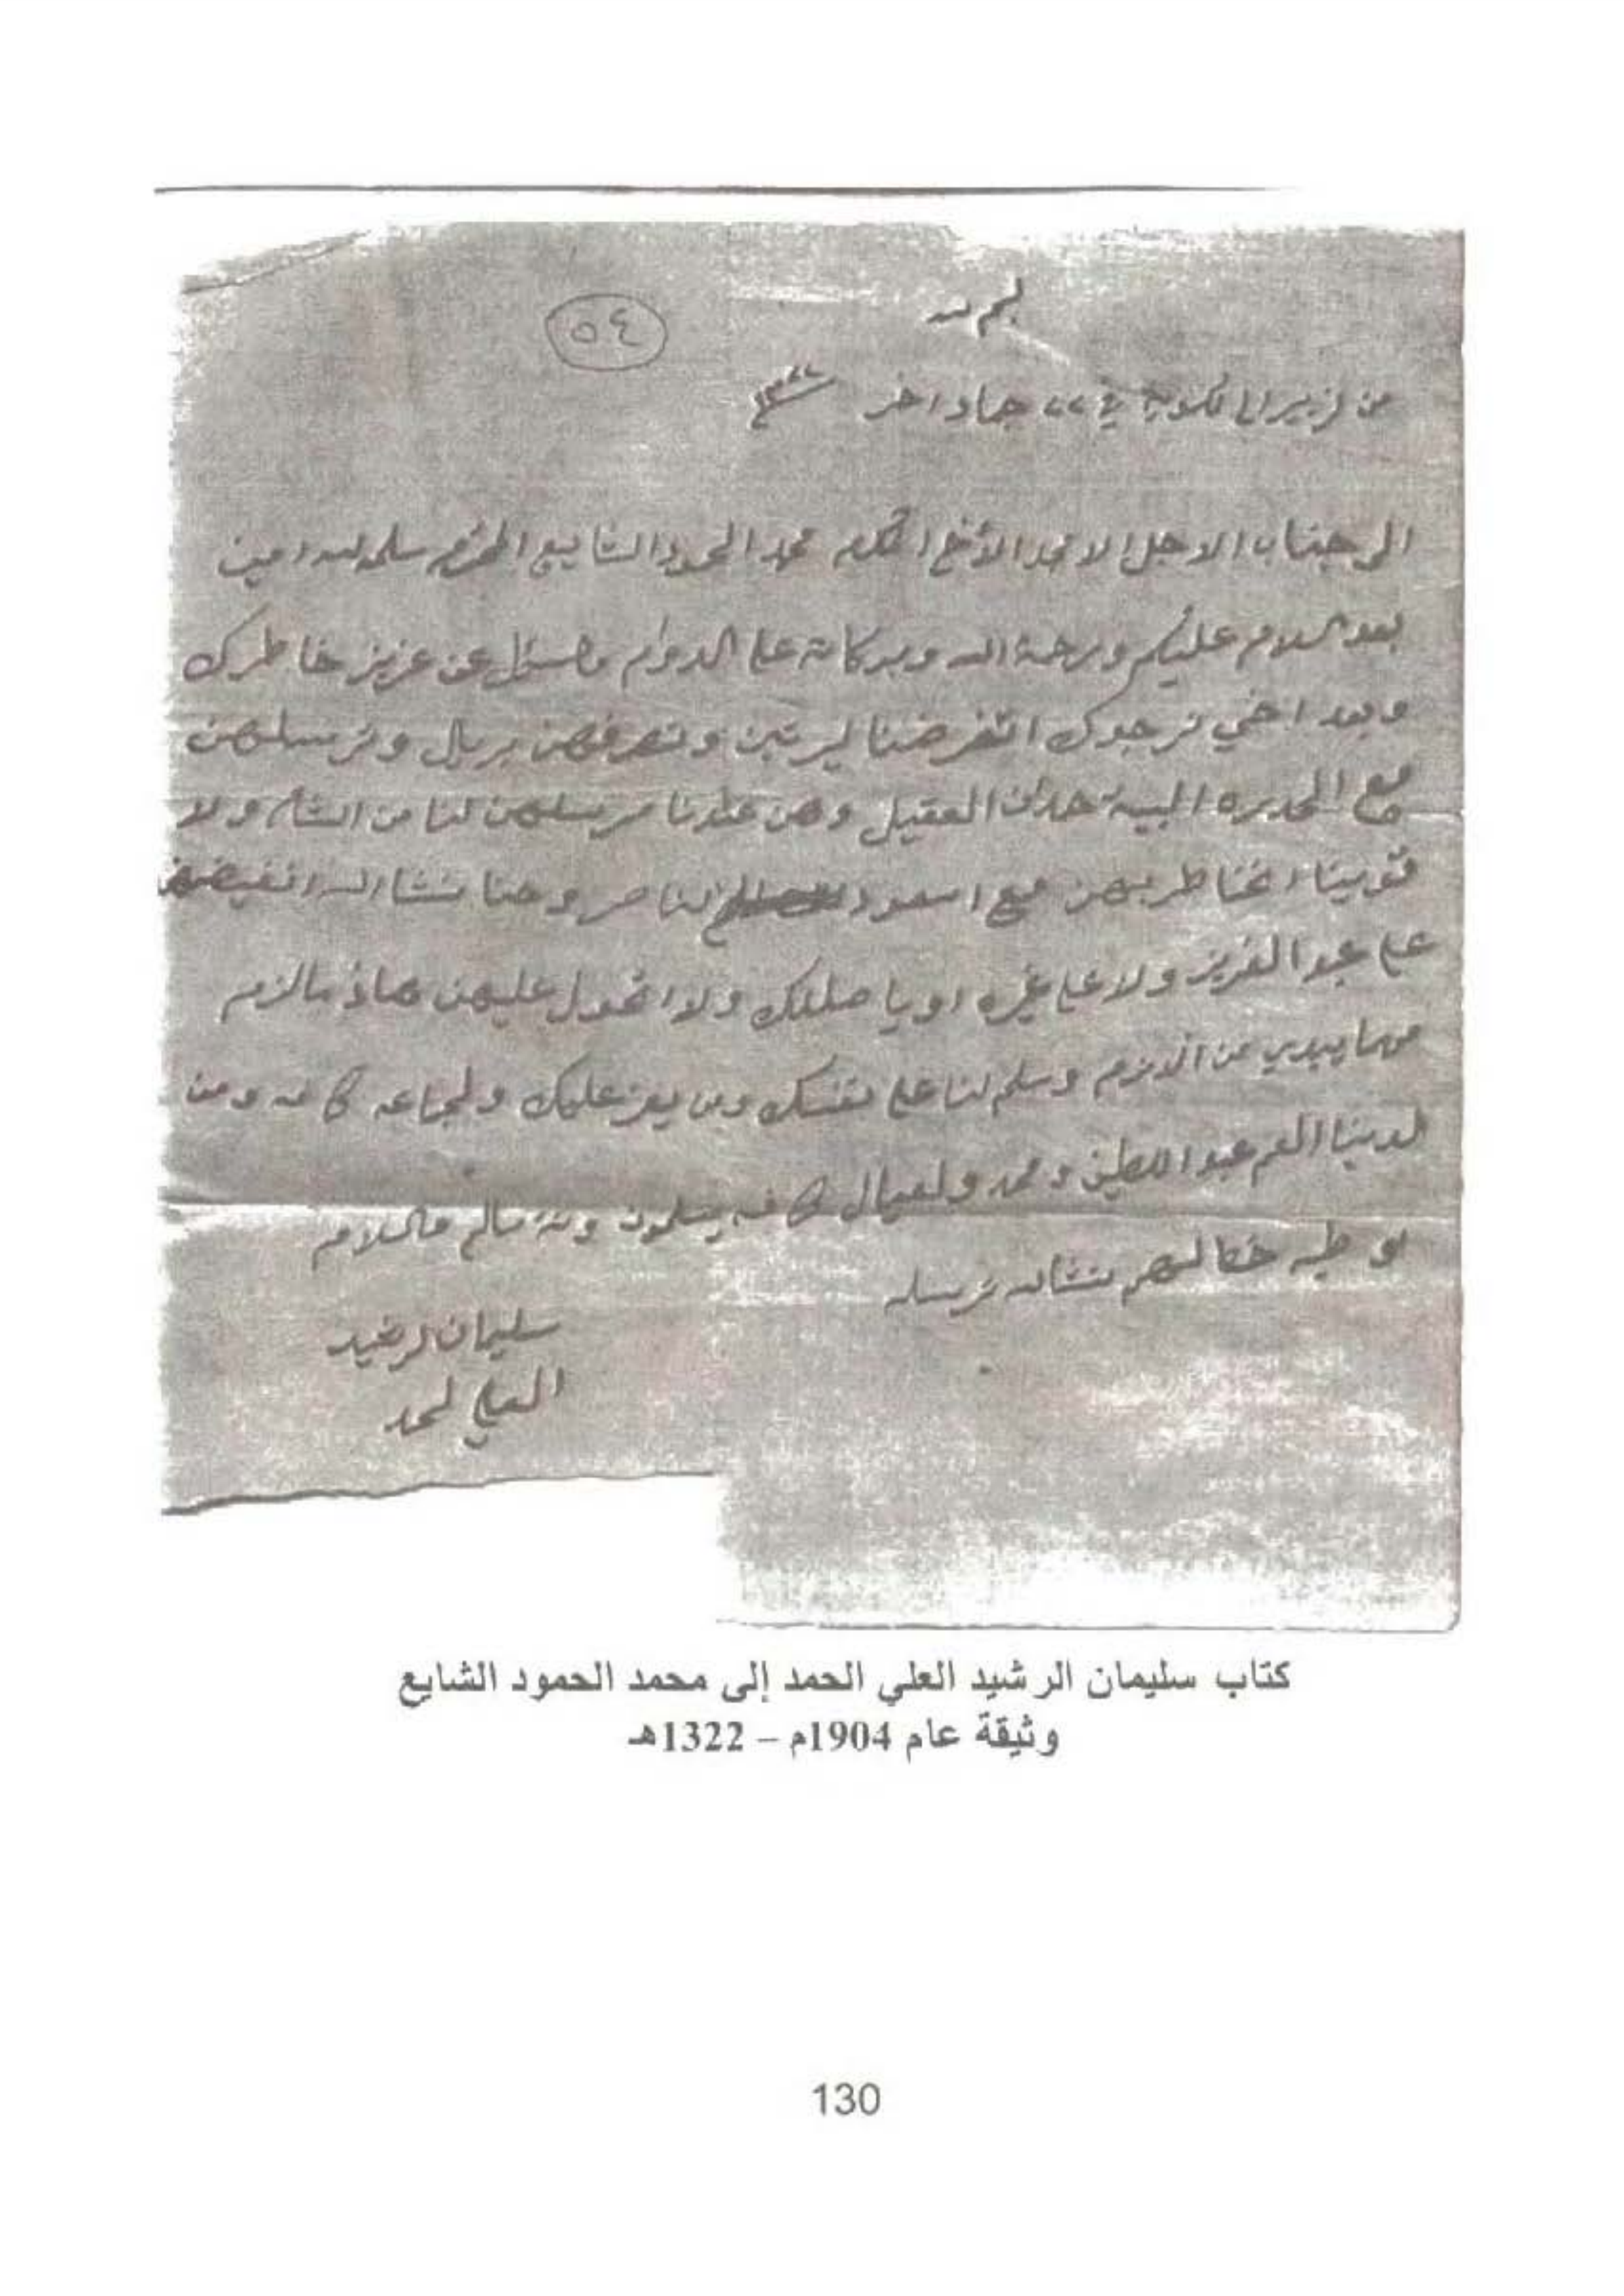 بسم الله
٥٤
من لزبير الى لكويت في ٢٢ جماد اخر ١٣٢٢
الى جناب الاجل الامجد الأخ المكرم محمد الحمود الشايع المحترم سلمه الله امين
بعد السلام عليكم ورحمة الله وبركاته على الدوام والسئول عن عزيز خاطرك
وبعد اخي نرجوك اتقرضنا ليرتين وتصرفهن بريال وترسلهن
مع العقيل وهن عندنا لنا من الشام ولا
مع اسعود الناصر وحنا نشاالله
على عبدالعزيز ولا على غيره او ولا اتحول عليهن هاذ مالزم
مهما يبدي من الازم وسلم لنا على نفسك ومن يعز عليك ولجماعه كافه ومن
لدينا العم عبداللطيف ومحمد ولعيال كافه يسلمون ونته سالم والسلام
نشالله نرسله
سليمان لرشيد
العلي لحمد
كتاب سليمان الرشيد العلي الحمد إلى محمد الحمود الشايع
وثيقة عام 1904م – 1322هـ
130